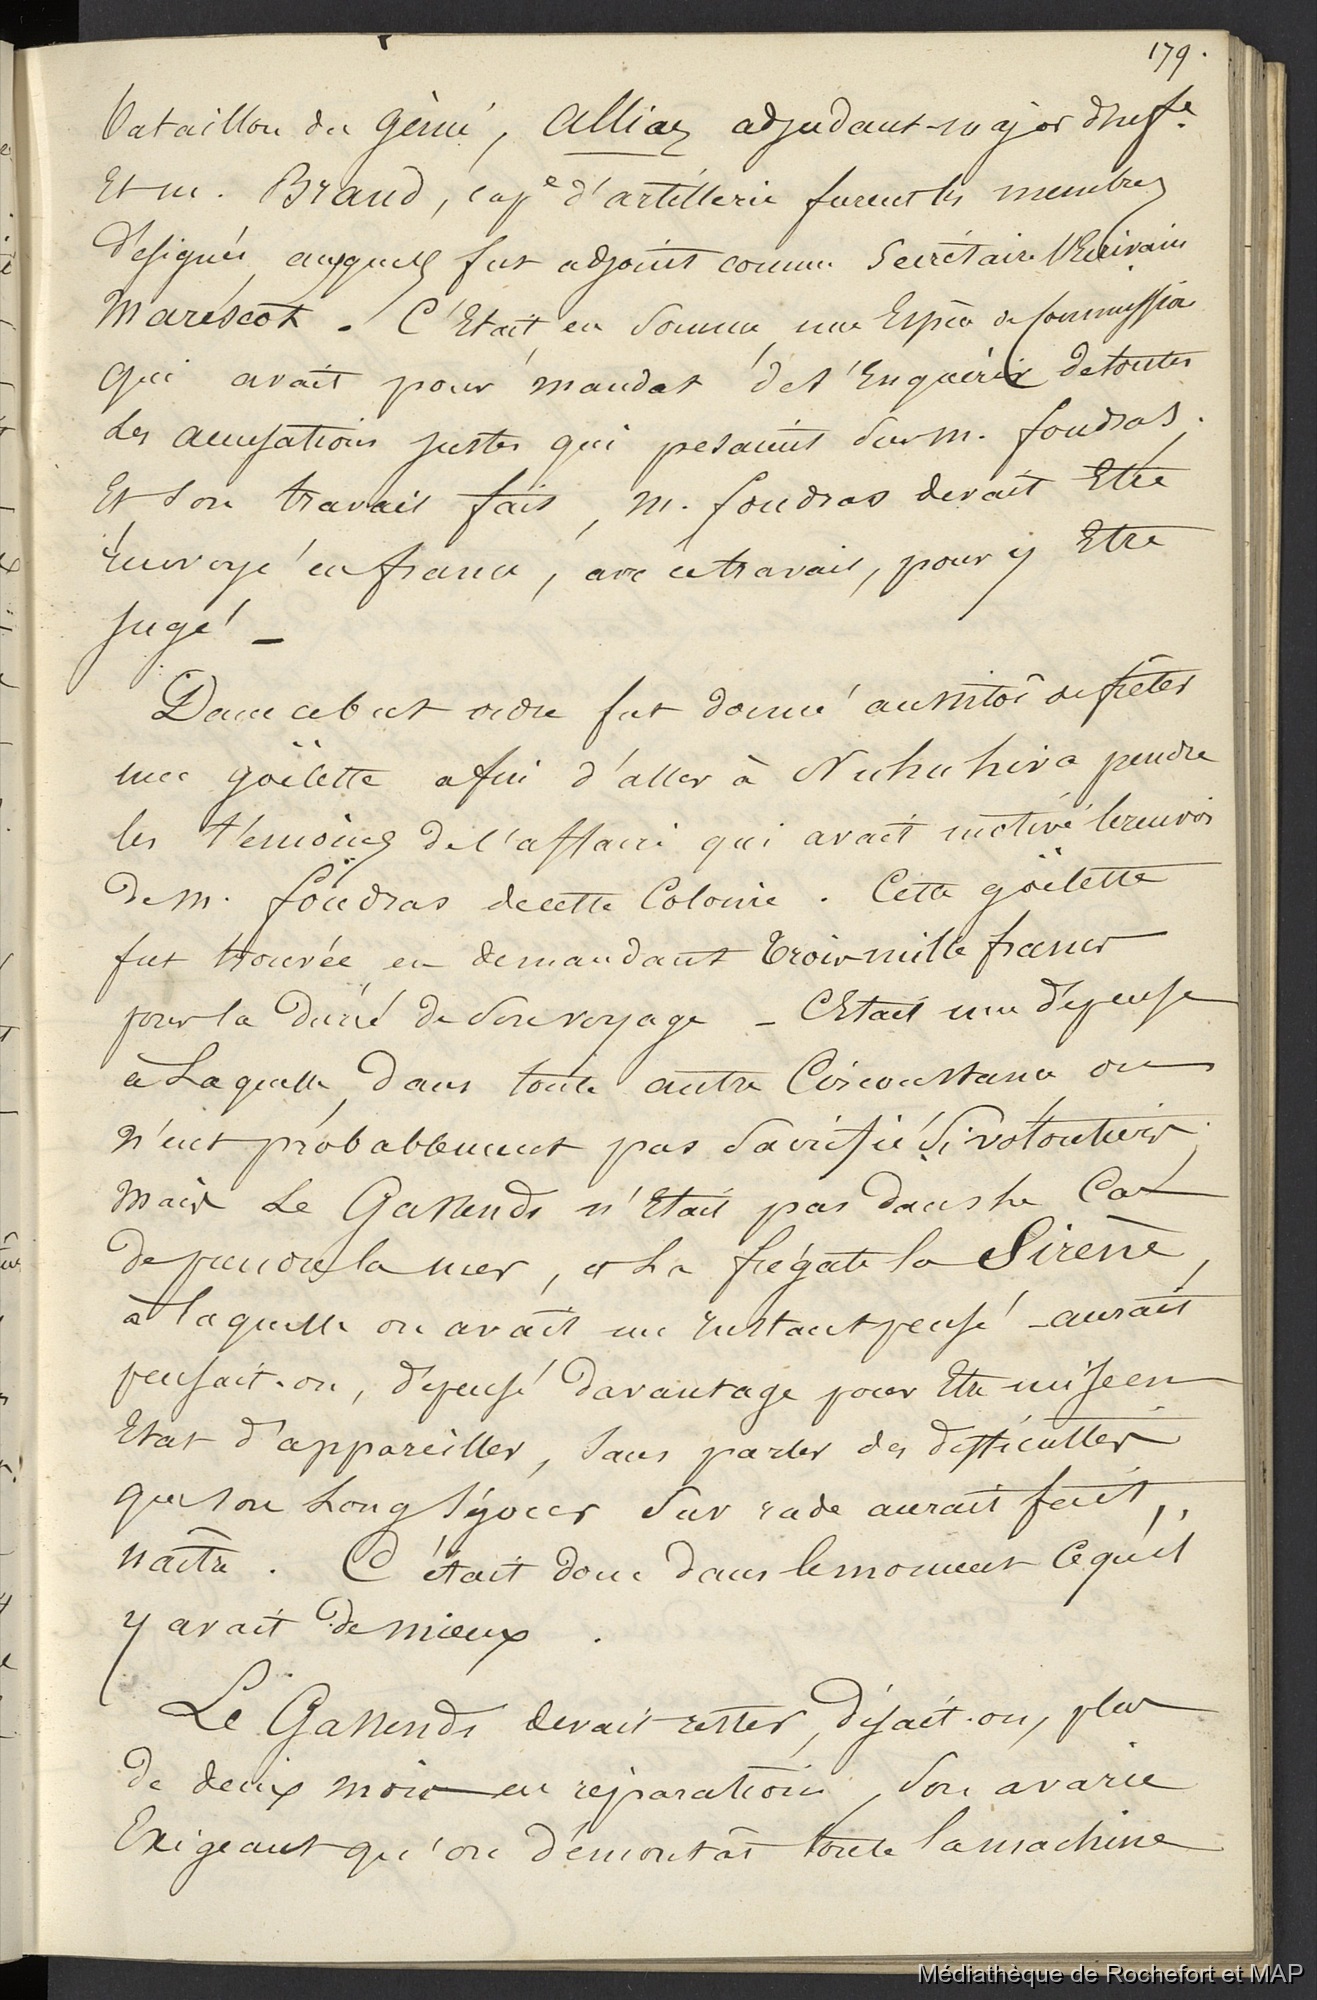 179.
bataillon du Génie, Alliaz adjudant-major d'Inf.e
Et m. Braud, cap.e d'artillerie furent les membres
désignés auxquels fut adjoint comme Secrétaire l'Ecrivain
Maréscot. C'Etait, en Somme, une Espèce de Commission
qui avait pour mandat de s'Enquérir de toutes
les accusations justes qui pesaient Sur m. foudras.
Et Son travail fait, m. foudras devait Etre
Envoyé en france, avec ce travail, pour y Etre
jugé —
Dans ce but ordre fut donné aussitôt de fréter
une goëlette afin d'aller à Nuhuhiva prendre
les témoins de l'affaire qui avait motivé le renvoi
de m. foudras de cette Colonie. Cette goëlette
fut trouvée en demandant trois mille francs
pour la durée de Son voyage — C'Etait une dépense
à Laquelle, dans toute autre Circonstance on
n'eut probablement pas Sacrifié Si volontiers,
mais Le Gassendi n'Etait pas dans le Cas
de prendre la mer, et La frégate la Sirène,
à laquelle on avait un Instant pensé — aurait
pensait-on, dépensé davantage pour Etre mise en
Etat d'appareiller, Sans parler des difficultés
que Son Long Séjour Sur rade aurait fait,,
naître. C'était donc dans le moment Ce qu'il
y avait de mieux.
Le Gassendi devait rester, disait-on, plus
de deux mois en réparations, Son avarie
Exigeant qu'on démontât toute la machine
Médiathèque de Rochefort et MAP